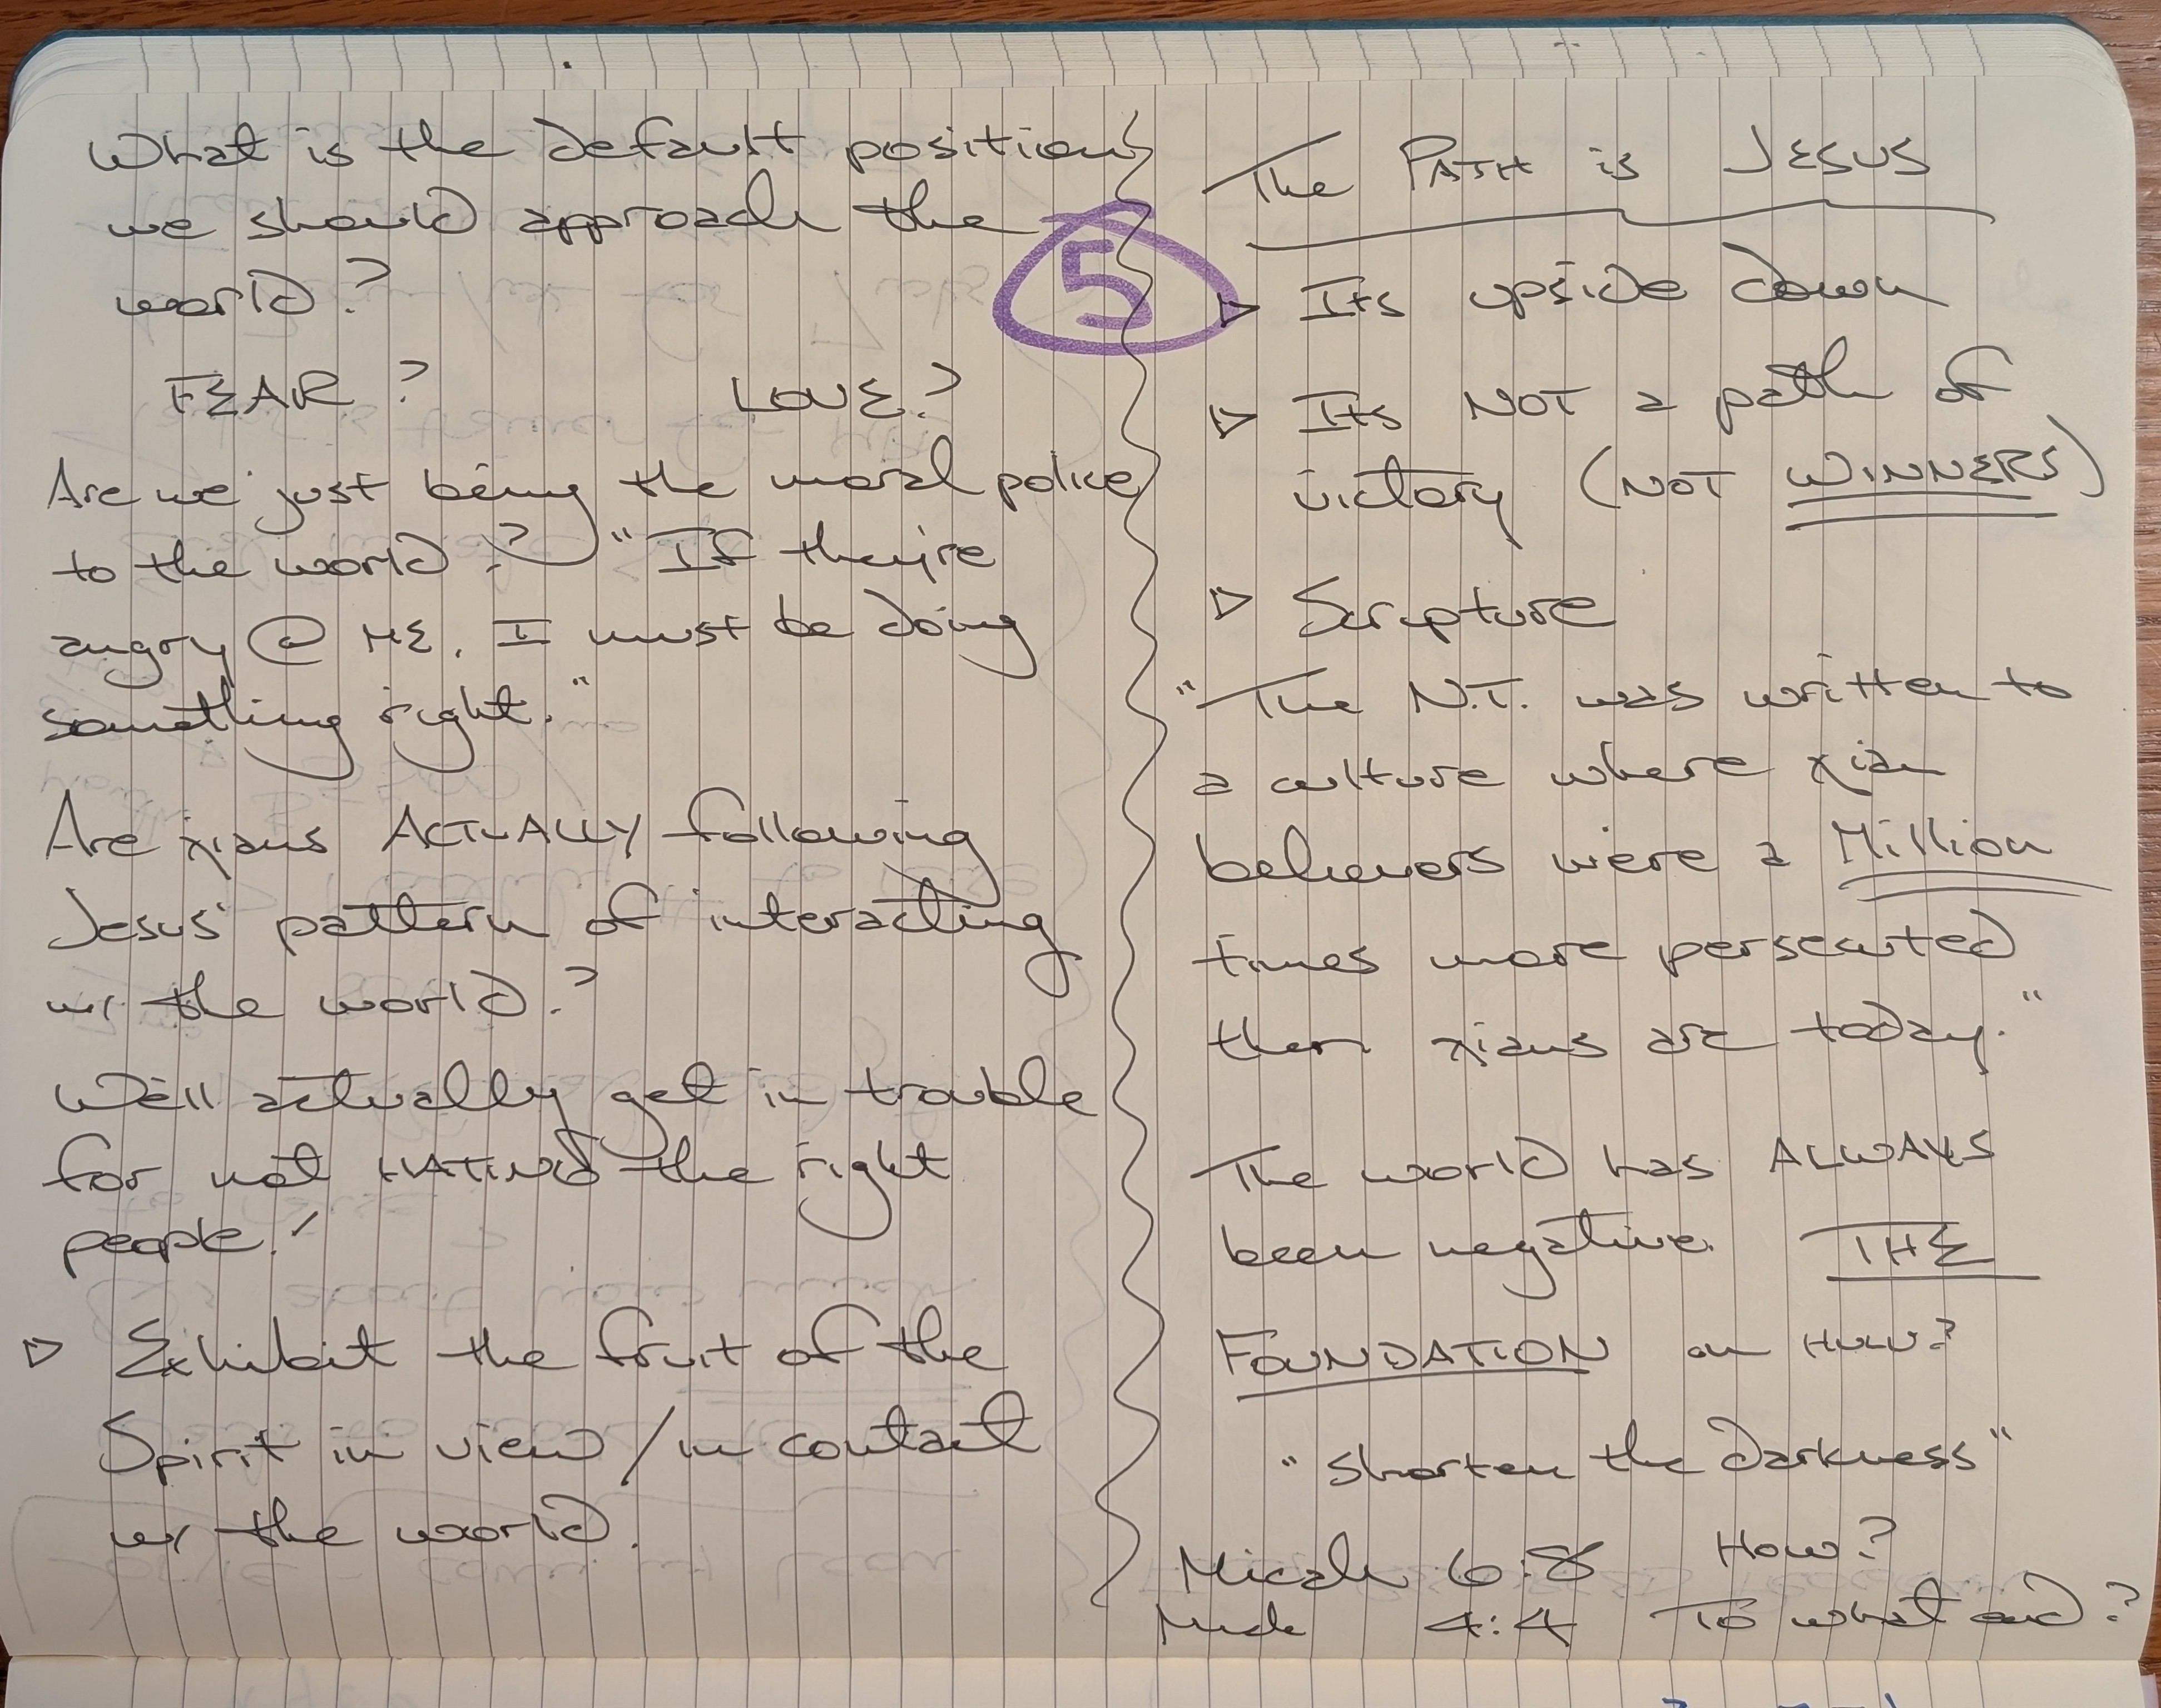 What is the default position
we should approach the
world?
FEAR? LOVE?
Are we just being the moral police
to the world? "If they're
angry @ ME, I must be doing
something right."
Are xians ACTUALLY following
Jesus' pattern of interacting
w/ the world?
We'll actually get in trouble
for not HATING the right
people!
▷ Exhibit the fruit of the
Spirit in view/in contact
w/ the world.
5
The PATH is JESUS
▷ Its upside down
▷ Its NOT a path of
victory (NOT WINNERS)
▷ Scripture
"The N.T. was written to
a culture where xian
believers were a Million
times more persecuted
then xians are today."
The world has ALWAYS
been negative. THE
FOUNDATION on HULU?
"shorten the darkness"
Micah 6:8 How?
4:4 To what end?